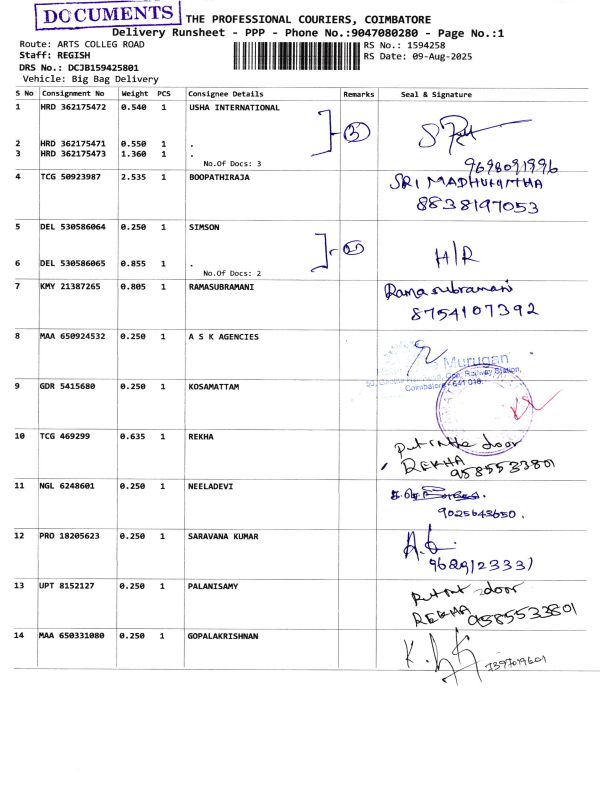 DOCUMENTS
THE PROFESSIONAL COURIERS, COIMBATORE
Delivery Runsheet - PPP - Phone No.:9047080280 - Page No.:1
Route: ARTS COLLEG ROAD RS No.: 1594258
Staff: REGISH RS Date: 09-Aug-2025
DRS No.: DCJB159425801
Vehicle: Big Bag Delivery
S No Consignment No Weight PCS Consignee Details Remarks Seal & Signature
1 HRD 362175472 0.540 1 USHA INTERNATIONAL
3
2 HRD 362175471 0.550 1 .
3 HRD 362175473 1.360 1 .
No.Of Docs: 3
9698091996
4 TCG 50923987 2.535 1 BOOPATHIRAJA
SRI MADHUMITHA
8838197053
5 DEL 530586064 0.250 1 SIMSON
H/R
6 DEL 530586065 0.855 1 .
No.Of Docs: 2
7 KMY 21387265 0.805 1 RAMASUBRAMANI Ramasubramani
8754107392
8 MAA 650924532 0.250 1 A S K AGENCIES
Murugan
Opp. Railway Station,
Coimbatore - 641 018.
9 GDR 5415680 0.250 1 KOSAMATTAM
10 TCG 469299 0.635 1 REKHA Put in the door
REKHA
9585533801
11 NGL 6248601 0.250 1 NEELADEVI
9025643650.
12 PRO 18205623 0.250 1 SARAVANA KUMAR
13 UPT 8152127 0.250 1 PALANISAMY door
REKHA 9585533801
14 MAA 650331080 0.250 1 GOPALAKRISHNAN
7397019601